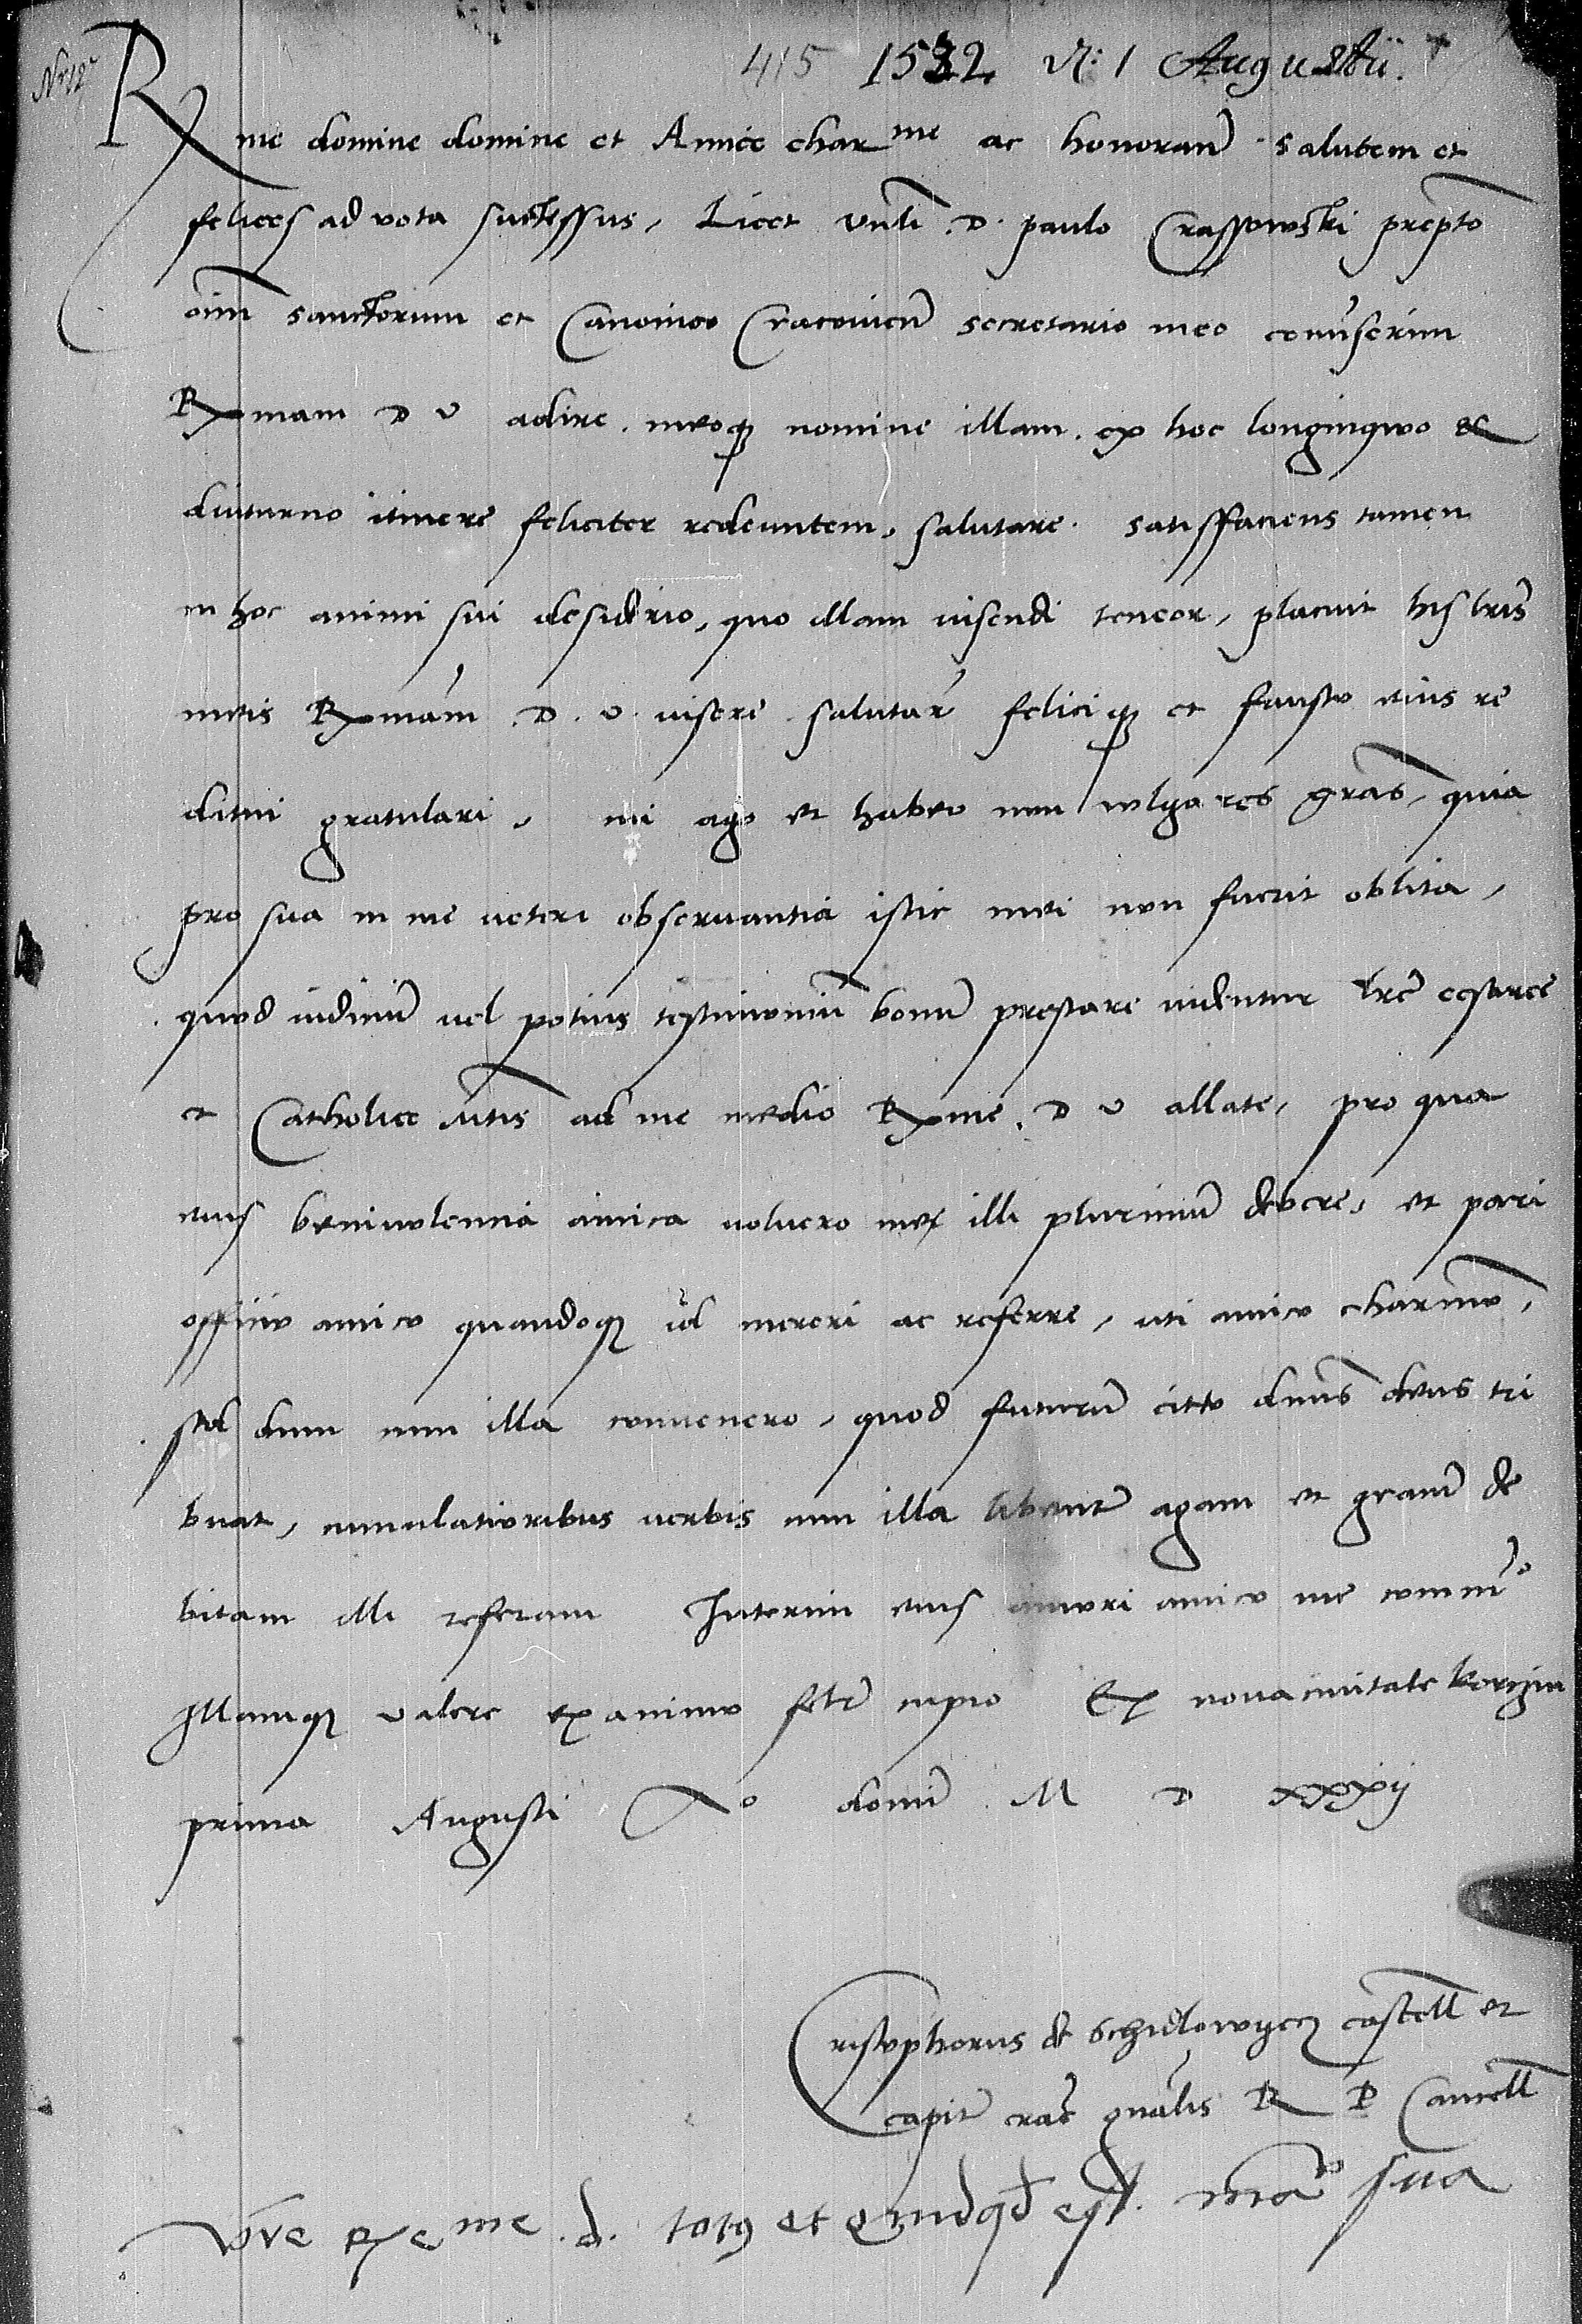 Nr 12
415 1532 d: 1 Augustii.
Rme domine domine et Amice charme ac honoran̄ salutem et
felices ad vota successus, Licet vn̄li D. paulo Crassowski prepto
oim̄ sanctorum et Canonico Cracovien̄ secretario meo comiserim
Rmam D v adire meoq; nomine illam ex hoc longinquo &
diuturno itinere feliciter redeuntem, salutare. satisfaciens tamen
in hoc animi sui desiderio, quo illam uisendi teneor, placuit his lrīs
meis Rmam D. v. uisere salutar̄ feliciq; et fausto eius re
ditui gratulari, cui ago et habeo non wlgares gras̄, quia
pro sua in me ueteri obseruantia istic mei non fuerit oblita,
quod indiciū uel potius testimoniū bonū prestare uidentur lrē cesaree
et Catholice mtis ad me medio Rme. D v allate, pro qua
eius beniuolencia amica voluero mox illi plurimū debere, et pari
officio amico quandoq; id mereri ac referre, uti amico charmo,
sed dum cum illa conuenero, quod futurū cito dn̄us deus tri
buat, cumulatioribus verbis cum illa libent̄ agam et gram̄ de
bitam illi referam Interim eius amori amico me comm̄o
Illamq; valere ex animo felr̄ cupio Ex noua ciuitate korczin
prima Augusti Ao domī M D xxxij
Cristophorus de Schidlowyecz castell et
capit̄ crac̄ gn̄alis R P Cancell
vr̄e Reme .d. totus et quidqd est. man̄ sua